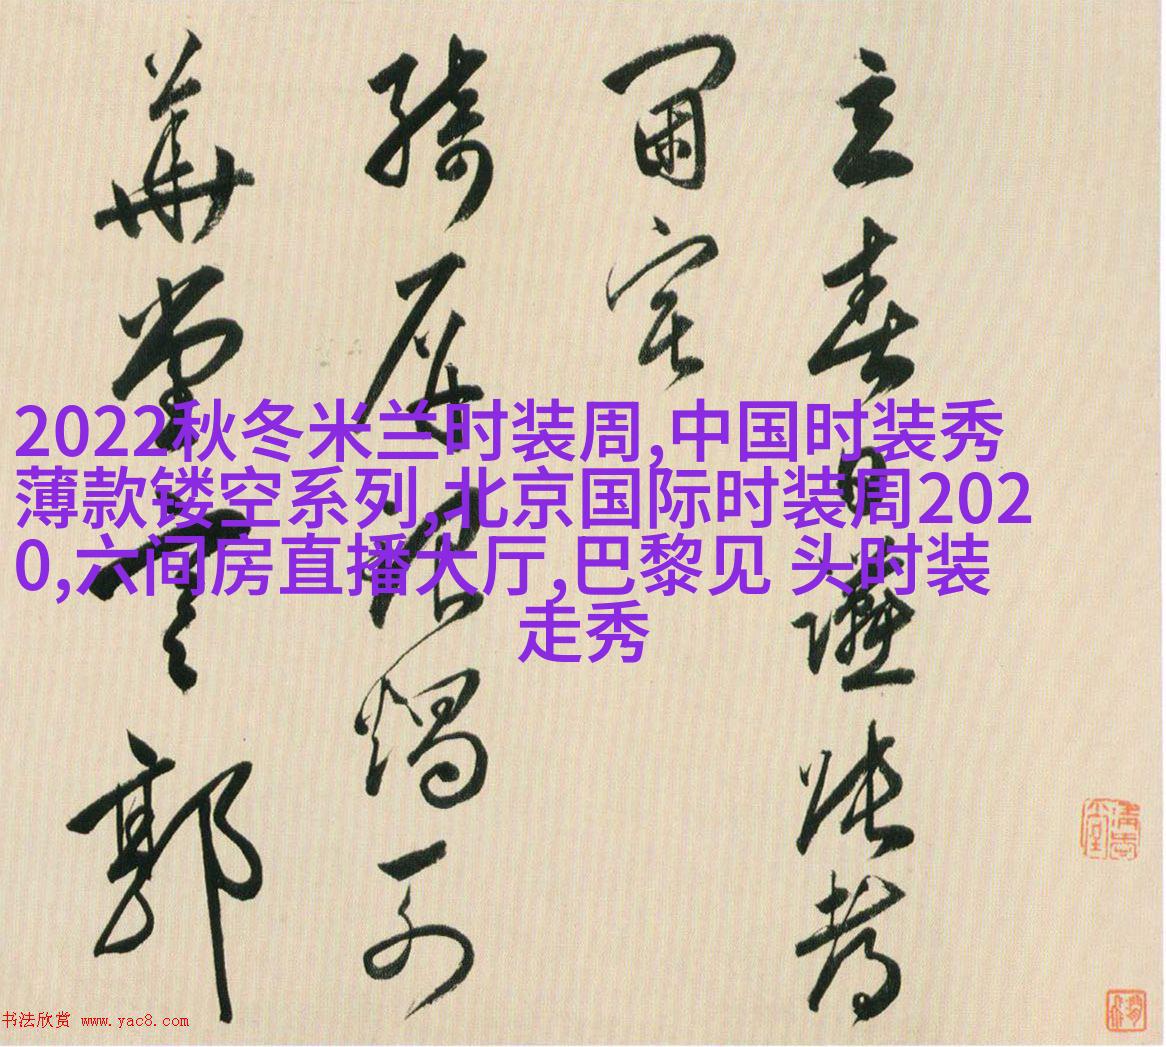 立春日讌張都
閫宅
綺銀燭
華堂
郭
2022秋冬米兰时装周,中国时装秀
薄款镂空系列,北京国际时装周202
0,六间房直播大厅,巴黎见 头时装
走秀
书法欣赏 www.yac8.com